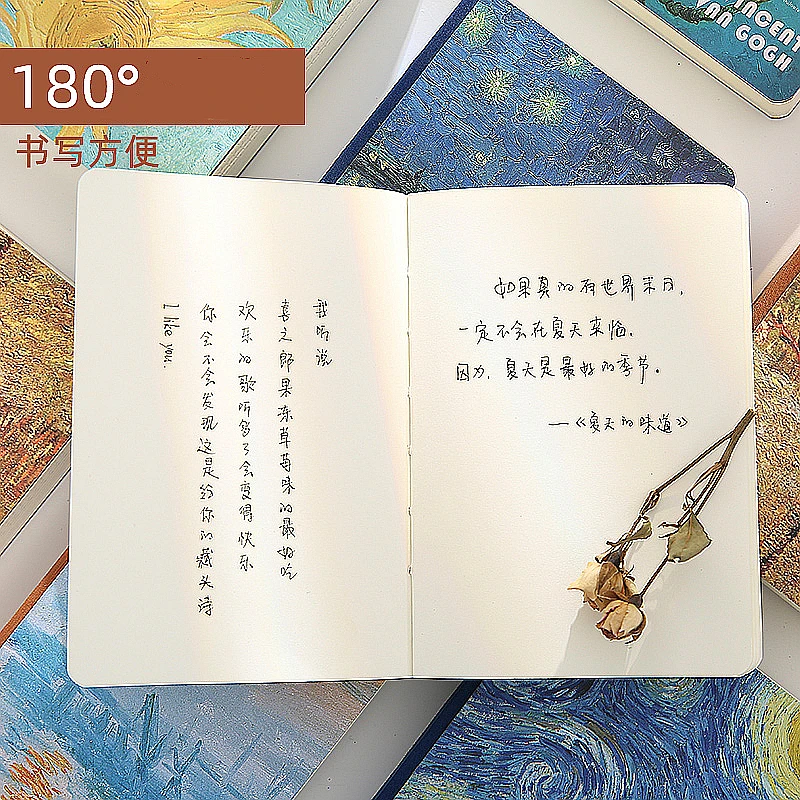 180°
书写方便
VINCENT
VAN GOGH
我听说
喜之郎果冻草莓味的最好吃
欢乐的歌听多了会变得快乐
你会不会发现这是给你的藏头诗
I like you.
如果真的有世界末日,
一定不会在夏天来临.
因为,夏天是最好的季节。
—《夏天的味道》